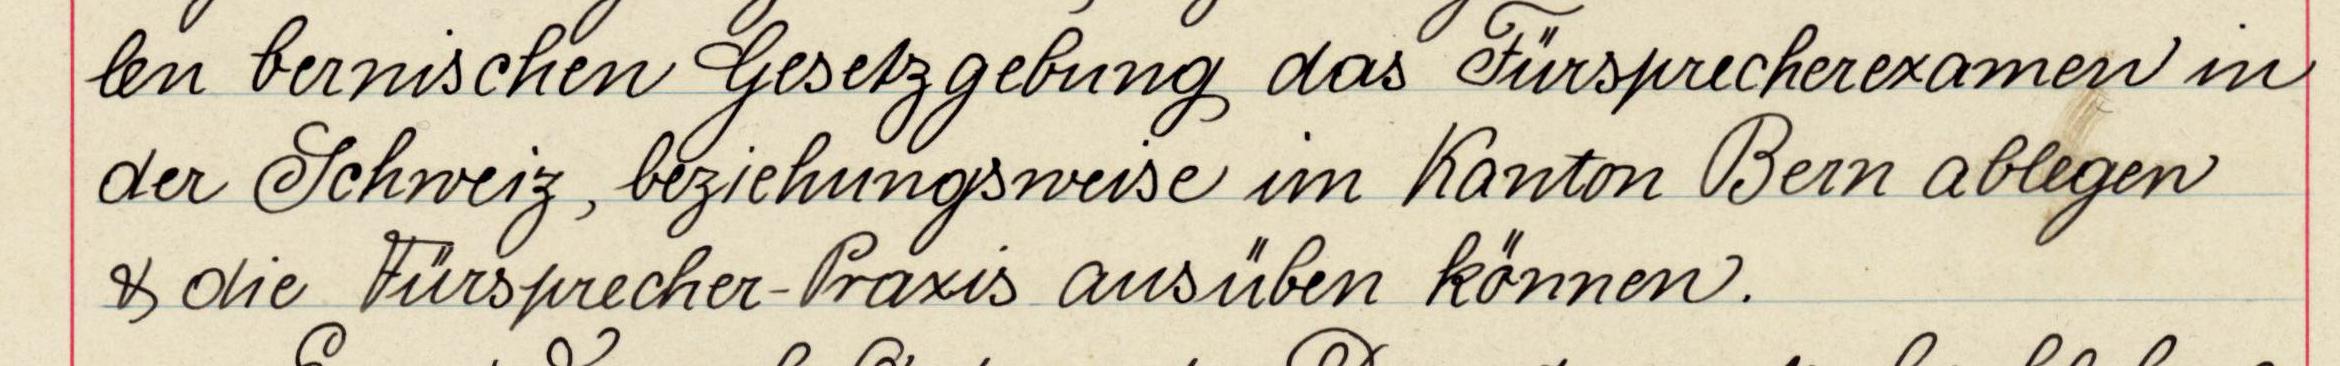 len bernischen Gesetzgebung das Fürsprecherexamen in
der Schweiz, beziehungsweise im Kanton Bern ablegen
& die Fürsprecher-Praxis ausüben können.